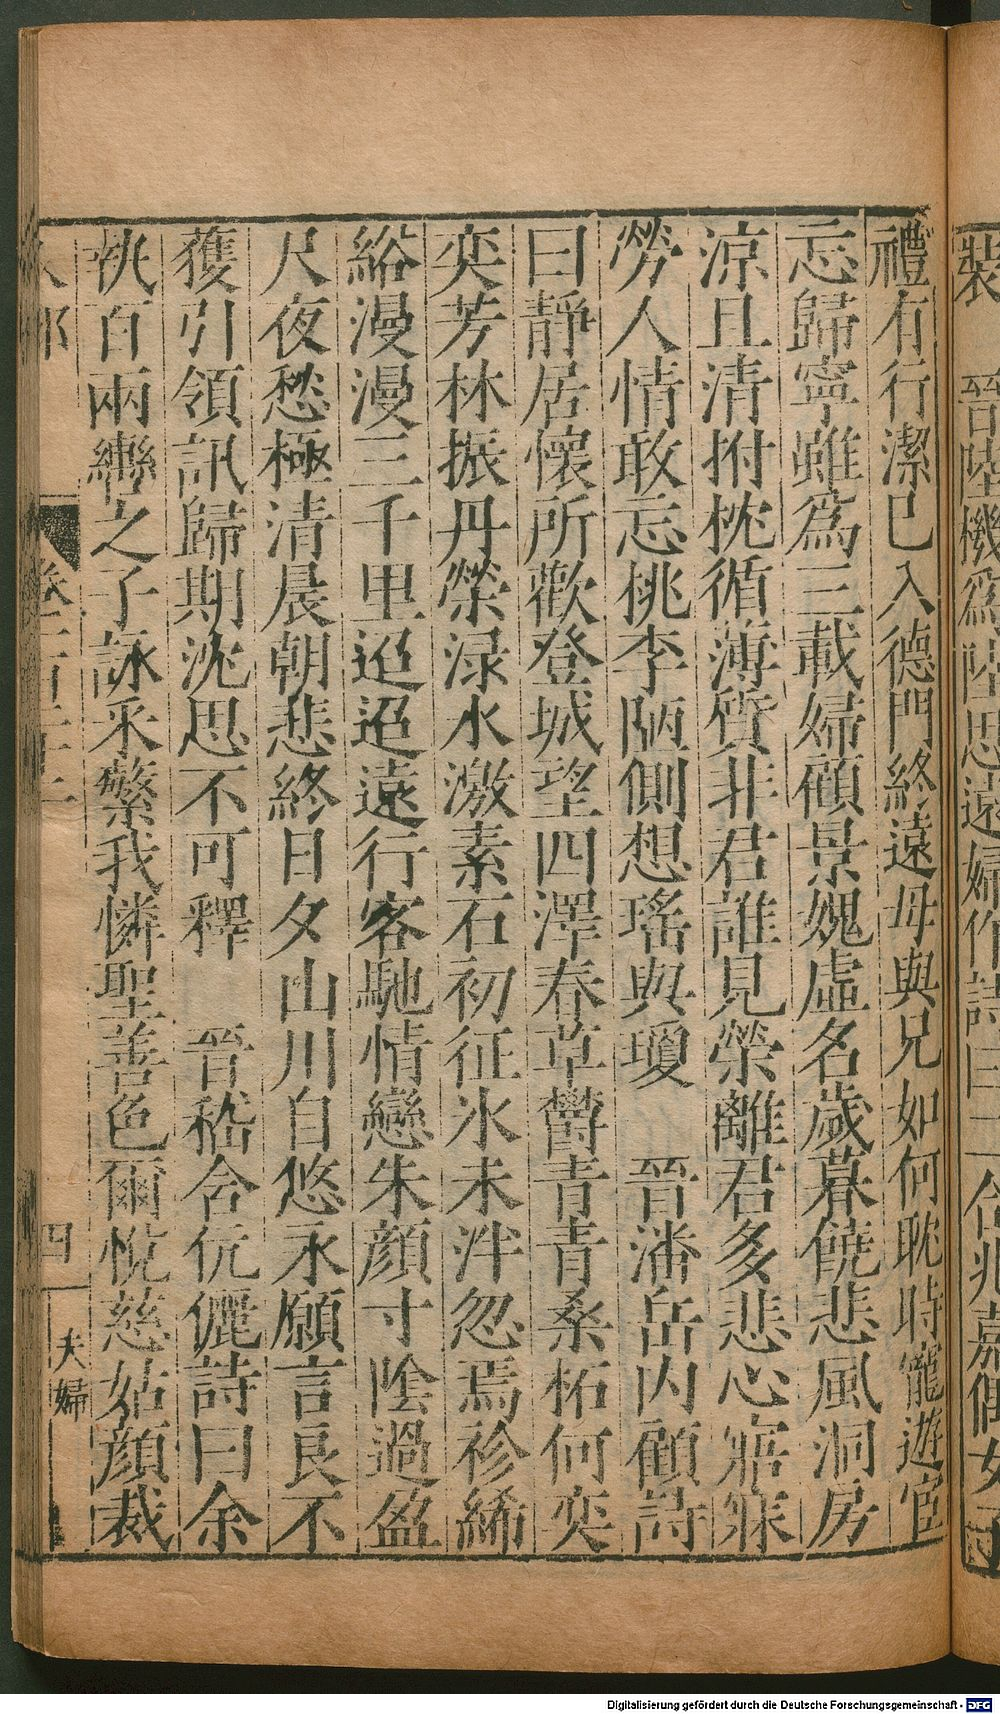 裝　晉陸機爲陸思遠婦作詩曰二合兆嘉偶女子
禮有行潔已入德門終遠母與兄如何耽時寵遊宦
忘歸寧雖爲三載婦顧景媿虛名歲暮饒悲風洞房
涼且清拊枕循薄質非君誰見榮離君多悲心寤寐
勞人情敢忘桃李陋側想瑤與瓊　晉潘岳內顧詩
曰靜居懷所歡登城望四澤春草鬱青青桑柘何奕
奕芳林振丹榮淥水激素石初征氷未泮忽焉袗絺
綌漫漫三千里迢迢遠行客馳情戀朱顏寸陰過盈
尺夜愁極清晨朝悲終日夕山川自悠永願言良不
獲引領訊歸期沈思不可釋　晉嵇含伉儷詩曰余
執百兩轡之子詠采蘩我憐聖善色爾悅慈姑顏裁
四
夫婦
Digitalisierung gefördert durch die Deutsche Forschungsgemeinschaft - DFG